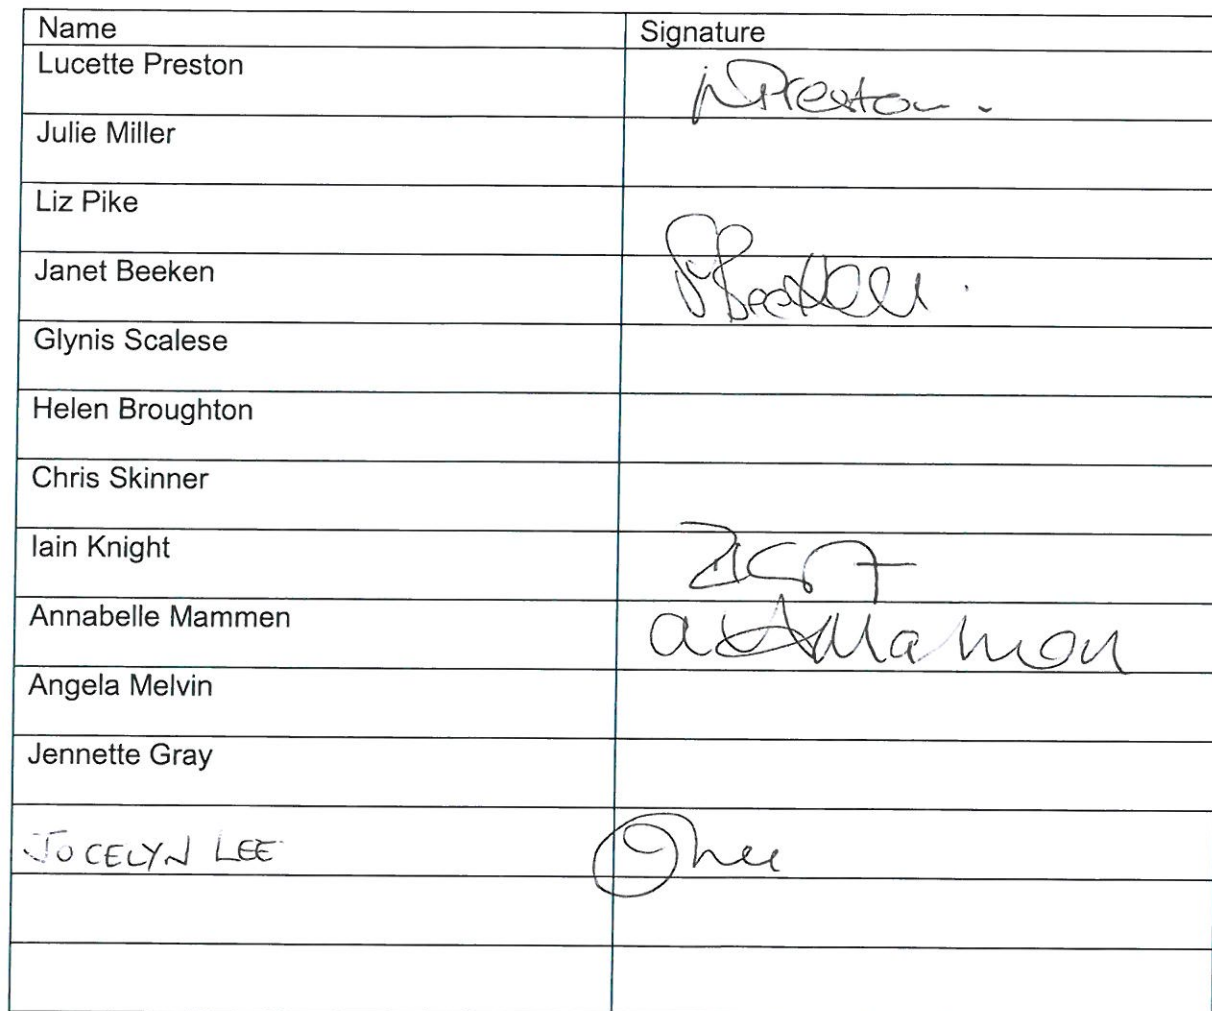 Name Signature
Lucette Preston Preston.
Julie Miller
Liz Pike
Janet Beeken
Glynis Scalese
Helen Broughton
Chris Skinner
Iain Knight
Annabelle Mammen
Angela Melvin
Jennette Gray
JOCELYN LEE